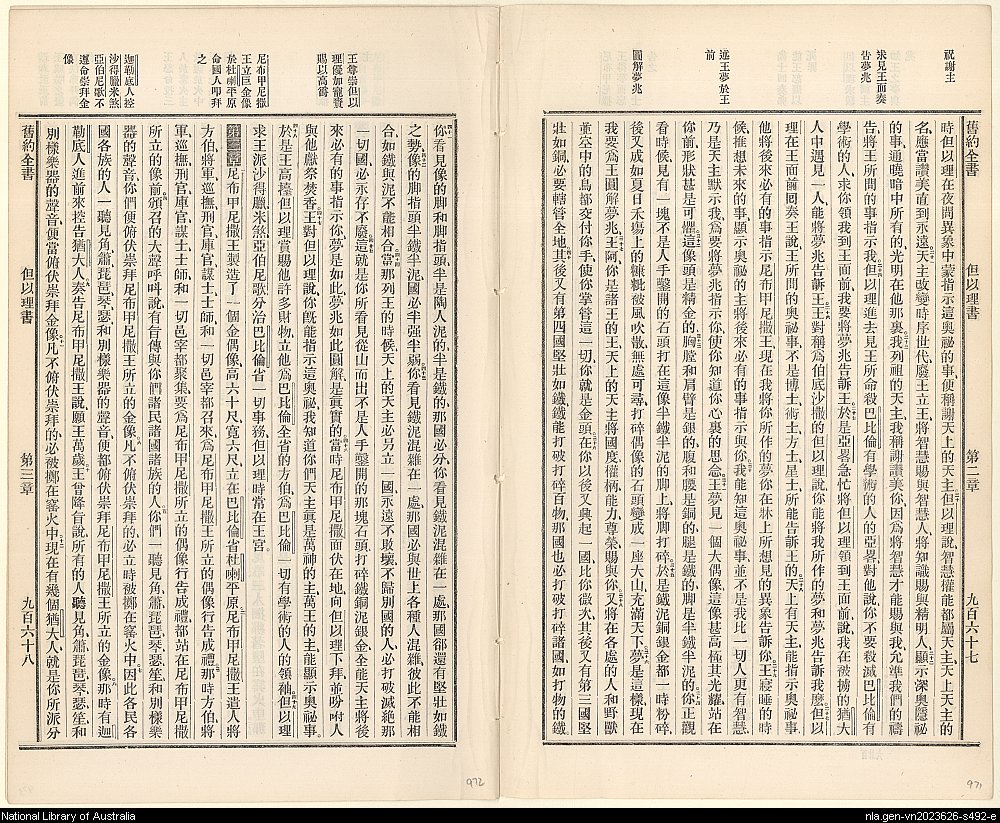 祝謝主
求見王面奏
告夢兆
述王夢於王
前
圓解夢兆
舊約全書 但以理書 第二章 九百六十七
時但以理在夜間異象中蒙指示這奧祕的事便稱謝天上的天主但以理說智慧權能都屬天主天上天主的
名應當讚美直到永遠天主改變時序世代廢王立王將智慧賜與智慧人將知識賜與精明人顯示深奧隱祕
的事通曉暗中所有的光明在他那裏我列祖的天主我稱謝讚美你因爲將智慧才能賜與我允準我們的禱
告將王所問的事指示我但以理進去見王所命殺巴比倫有學術的人的亞畧對他說你不要殺滅巴比倫有
學術的人求你領我到王面前我要將夢兆告訴王於是亞畧急忙將但以理領到王面前說我在被擄的猶大
人中遇見一人能將夢兆告訴王王對稱爲伯底沙撒的但以理說你能將我所作的夢和夢兆告訴我麼但以
理在王面前囘奏王說王所問的奧祕事不是博士術士方士星士所能告訴王的天上有天主能指示奧祕事
他將後來必有的事指示尼布甲尼撒王現在我將你所作的夢你在牀上所想見的異象告訴你王寢睡的時
候推想未來的事顯示奧祕的主將後來必有的事指示與你我能知這奧祕事並不是我比一切人更有智慧
乃是天主默示我爲要將夢兆指示你使你知道你心裏的思念王夢見一個大偶像這像甚高極其光耀站在
你前形狀甚是可懼這像頭是精金的胸膛和肩臂是銀的腹和腰是銅的腿是鐵的脚是半鐵半泥的你正觀
看時候見有一塊不是人手鑿開的石頭打在這像半鐵半泥的脚上將脚打碎於是鐵泥銅銀金都一時粉碎
後又成如夏日禾塲上的糠粃被風吹散無處可尋打碎偶像的石頭變成一座大山充滿天下夢是這樣現在
我要爲王圓解夢兆王阿你是諸王的王天上的天主將國度權柄能力尊榮賜與你又將在各處的人和野獸
並空中的鳥都交付你手使你掌管這一切你就是金頭在你以後又興起一國比你微次其後又有第三國堅
壯如銅必要轄管全地其後又有第四國堅壯如鐵鐵能打破打碎百物那國也必打破打碎諸國如打物的鐵
971
王尊崇但以
理優加寵賚
賜以高爵
尼布甲尼撒
王立巨金像
於杜喇平原
命國人叩拜
之
迦勒底人控
沙得臘米煞
亞伯尼歌不
遵命崇拜金
像
你看見像的脚和脚指頭半是陶人泥的半是鐵的那國必分你看見鐵泥混雜在一處那國卻還有堅壯如鐵
之勢像的脚指頭半鐵半泥國必半强半弱你看見鐵泥混雜在一處那國必與世上各種人混雜彼此不能相
合如鐵與泥不能相合當那列王的時候天上的天主必另立一國永遠不敗壞不歸別國的人必打破滅絕那
一切國必永存不廢這就是你所看見從山而出不是人手鑿開的那塊石頭打碎鐵銅泥銀金全能天主將後
來必有的事指示你夢是如此夢兆如此圓解是眞實的當時尼布甲尼撒面伏在地向但以理下拜並吩咐人
與他獻祭焚香王對但以理說你旣能指示這奧祕我知道你們天主眞是萬神的主萬王的主能顯示奧祕事
於是王高擡但以理賞賜他許多財物立他爲巴比倫全省的方伯爲巴比倫一切有學術的人的領袖但以理
求王派沙得臘米煞亞伯尼歌分治巴比倫省一切事務但以理時常在王宮
第三章 尼布甲尼撒王製造了一個金偶像高六十尺寬六尺立在巴比倫省杜喇平原尼布甲尼撒王遣人將
方伯將軍巡撫刑官庫官謀士士師和一切邑宰都召來爲尼布甲尼撒王所立的偶像行告成禮那時方伯將
軍巡撫刑官庫官謀士士師和一切邑宰都聚集要爲尼布甲尼撒所立的偶像行告成禮都站在尼布甲尼撒
所立的像前頒召的大聲呼呌說有旨傳與你們諸民諸國諸族的人你們一聽見角簫琵琶琴瑟笙和別樣樂
器的聲音你們便俯伏崇拜尼布甲尼撒王所立的金像凡不俯伏崇拜的必立時被擲在窰火中因此各民各
國各族的人一聽見角簫琵琶琴瑟和別樣樂器的聲音便都俯伏崇拜尼布甲尼撒王所立的金像那時有迦
勒底人進前來控告猶大人奏告尼布甲尼撒王說願王萬歲王曾降旨說所有的人聽見角簫琵琶琴瑟笙和
別樣樂器的聲音便當俯伏崇拜金像凡不俯伏崇拜的必被擲在窰火中現在有幾個猶大人就是你所派分
舊約全書 但以理書 第三章 九百六十八
972
National Library of Australia
nla.gen-vn2023626-s492-e